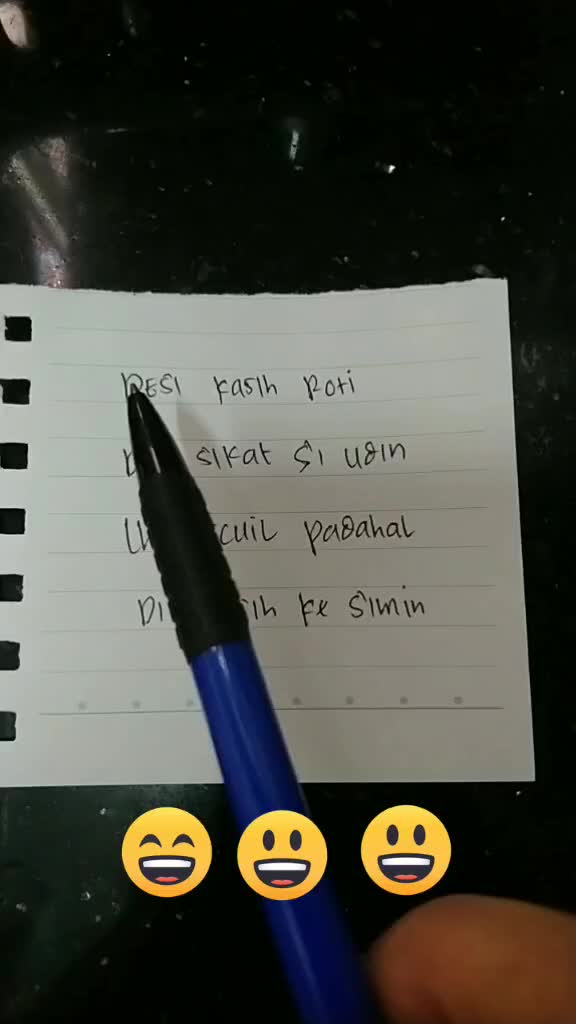 DESI kasih Roti
sikat si udin
cuil padahal
ke simin